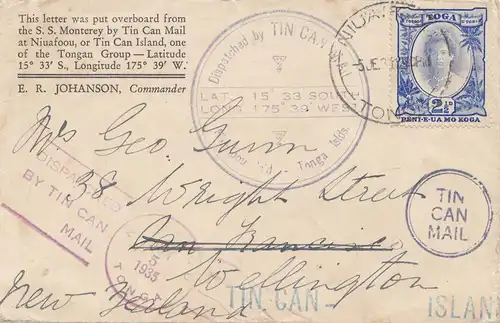 This letter was put overboard from
the S. S. Monterey by Tin Can Mail
at Niuafoou, or Tin Can Island, one
of the Tongan Group — Latitude
15° 33' S., Longitude 175° 39' W.
E. R. JOHANSON, Commander
Dispatched by TIN CAN MAIL
LAT. 15° 33 SOUTH
LONG 175° 39' WEST
Tonga Islds.
TOGA
2½D
PENI·E·UA MO KOGA
Mrs Geo. Gunn
38 Wright Street
San Francisco
Wellington
New Zealand
DISPATCHED
BY TIN CAN
MAIL
5
1935
TIN
CAN
MAIL
TIN CAN - ISLAND